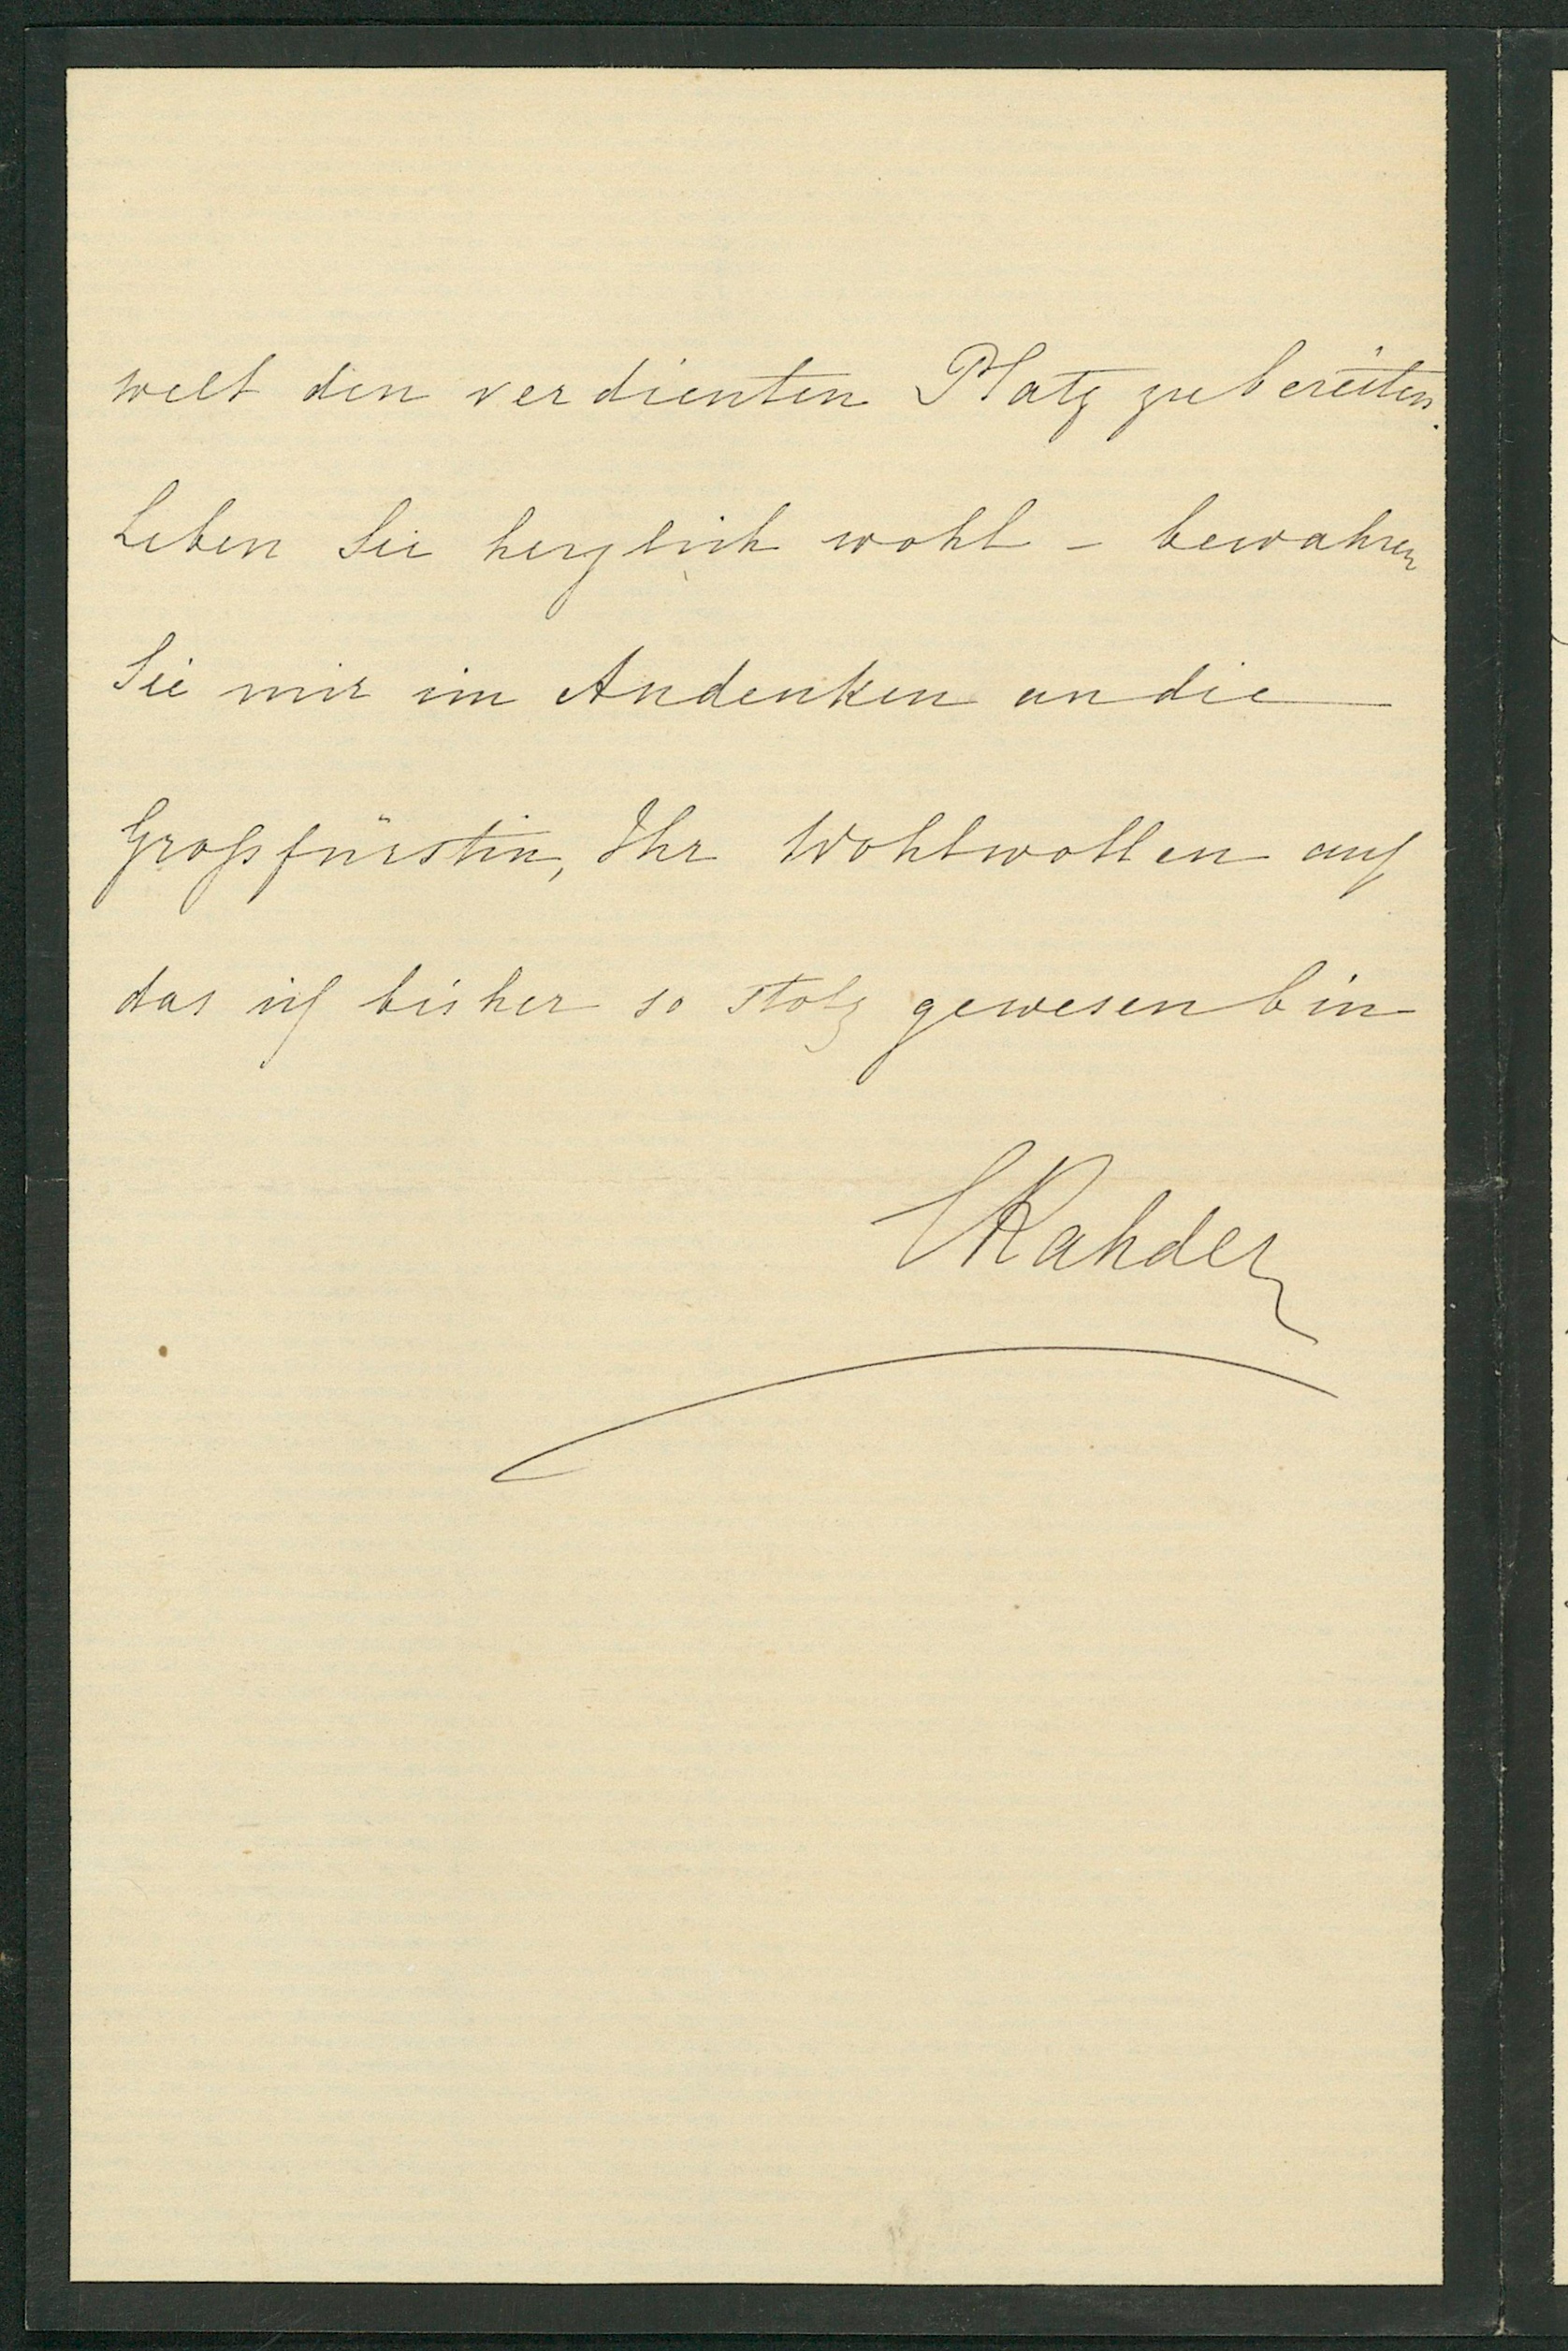 welt den verdienten Platz zu bereiten.
Leben Sie herzlich wohl - bewahren
Sie mir im Andenken an die
Großfürstin, Ihr Wohlwollen auf
das ich bisher so stolz gewesen bin
ERahden